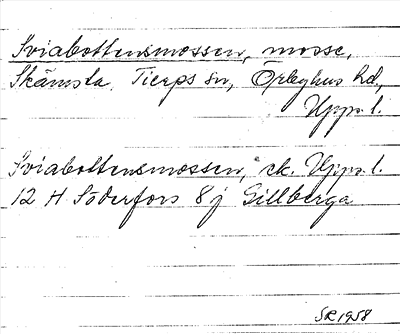 Sviabottensmossen, mosse,
Skämsta. Tierps sn, Örbyhus hd.,
Upps. l.
Sviabottensmossen, ek. Upps. l.
12 H Söderfors 8 j Gillberga
SR 1958